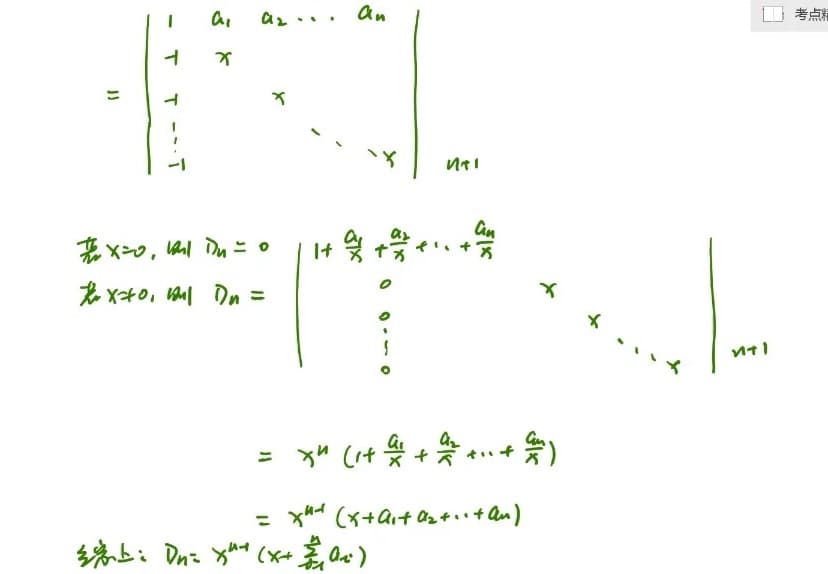 考点精
1 a₁ a₂ ... aₙ
-1 x
= -1 x
⋮ ⋱
-1 x n+1
若x=0, 则 Dₙ = 0
若x≠0, 则 Dₙ = | 1+a₁/x+a₂/x+...+aₙ/x
0 x
0 x
⋮ ⋱
0 x | n+1
= xⁿ (1+a₁/x+a₂/x+...+aₙ/x)
= xⁿ⁻¹ (x+a₁+a₂+...+aₙ)
综上: Dₙ= xⁿ⁻¹ (x+∑ⁿᵢ₌₁ aᵢ)